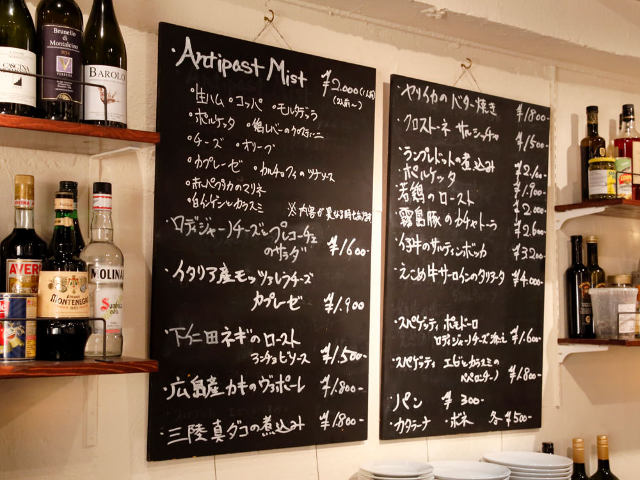 CASCINA
Brunello di Montalcino
BAROLO
AVER
MONTENEGRO
MOLINA
・Antipast Mist ¥2.000(1人前)
(2人前〜)
・生ハム・コッパ・モルタデッラ
・ポルケッタ・鶏レバーのクロスティーニ
・チーズ ・オリーブ
・カプレーゼ ・カルチョフィのツナソース
・赤パプリカのマリネ
・白インゲンとカラスミ
※内容が異なる時もあります
・ロディジャーノチーズとプレコーチェ
のサラダ ¥1600-
・イタリア産モッツァレラチーズ
カプレーゼ ¥1.900
・下仁田ネギのロースト
アンチョビソース ¥1.500-
・広島産カキのヴァポーレ ¥1.800-
・三陸真ダコの煮込み ¥1.800-
・ヤリイカのバター焼き ¥1800
・クロストーネ サルシッチャ ¥1500-
・ランプレドットの煮込み ¥2.100
・ポルケッタ ¥1.900
・若鶏のロースト ¥2.000
・霧島豚のカチャトーラ ¥2.600
・仔牛のサルティンボッカ ¥3200-
・えこめ牛サーロインのタリアータ ¥4.000-
・スパゲッティ ポモドーロ
ロディジャーノチーズ添え ¥1.600-
・スパゲッティ エビとカラスミの
ペペロンチーノ ¥1.800-
・パン ¥300-
・カタラーナ ・ボネ 各¥500-